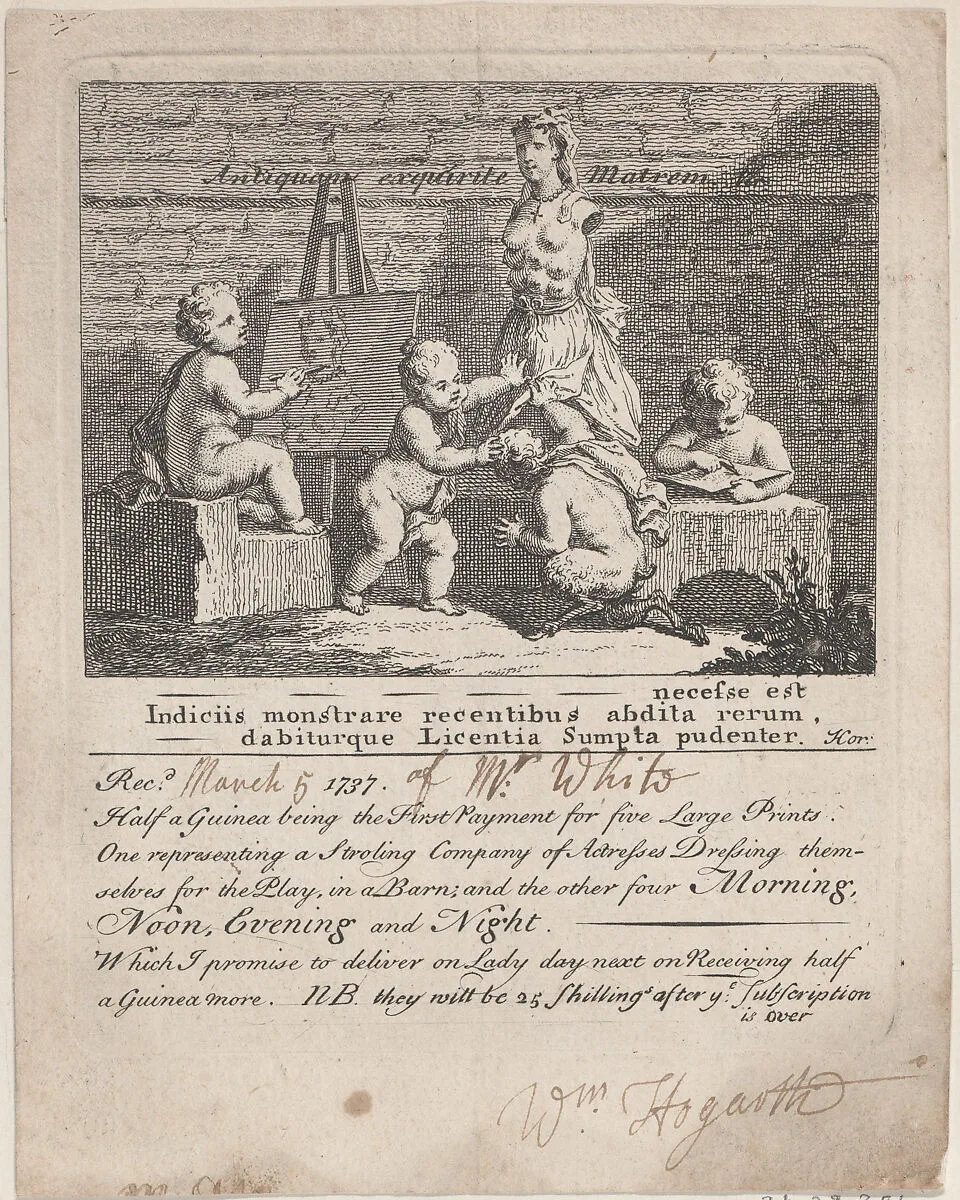 Antiquam exquirite Matrem
necesse est
Indiciis monstrare recentibus abdita rerum,
dabiturque Licentia Sumpta pudenter. Hor:
Rec.d March 5 1737. of Mr. White
Half a Guinea being the First Payment for five Large Prints.
One representing a Stroling Company of Actresses Dressing them-
selves for the Play, in a Barn; and the other four Morning,
Noon, Evening and Night.
Which I promise to deliver on Lady day next on Receiving half
a Guinea more. NB. they will be 25 Shillings after ye. Subscription
is over
Wm. Hogarth